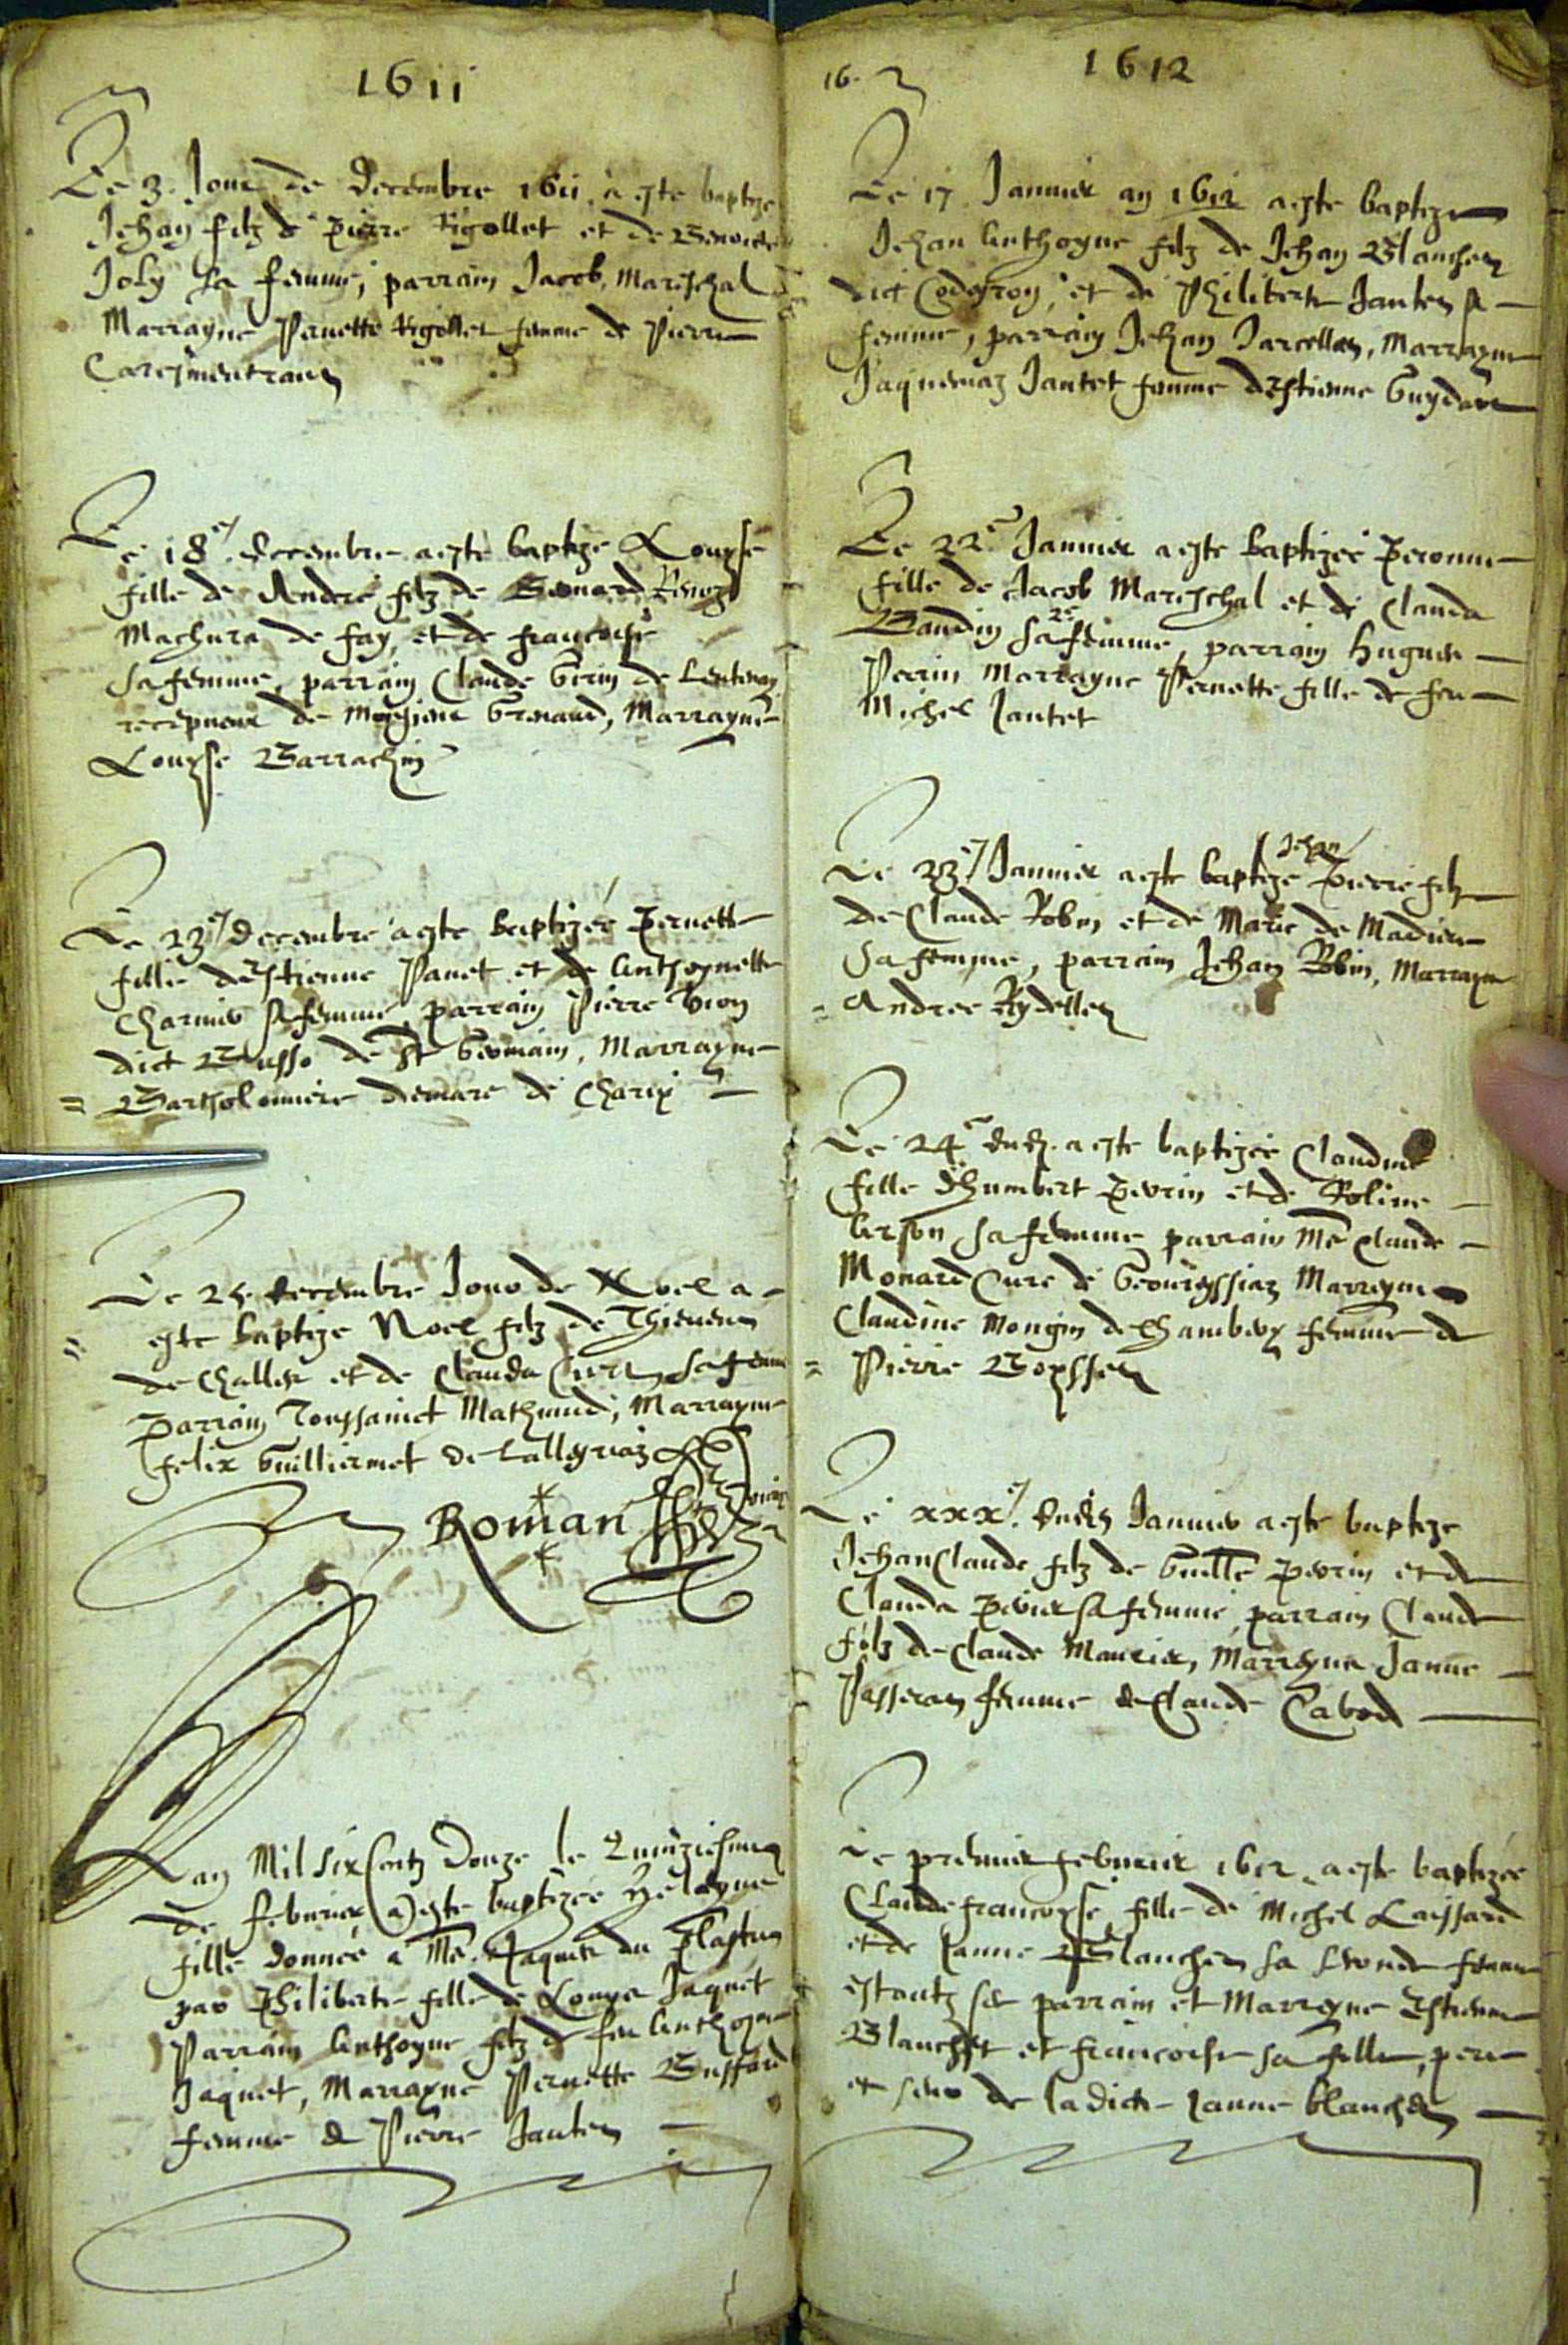 1611
Le 3. Jour de decembre 1611. a este baptize
Jehan filz de pierre Rigollet et de Benoiste
Joly sa femme, parrain Jacob Mareschal
Marrayne Pernette Rigollet femme de Pierre
Caresmentrant
Le 18e decembre a este baptize Louyse
fille de Andre filz de
Machura de fay, et de francoise
sa femme, parrain Claude de Lentenay
recepueur de Grenaud, Marrayne
Louyse Barrachin
Le 23e decembre a este baptizée pernette
fille destienne Panet et de Anthoynette
Charvier sa femme, parrain Pierre
dict Busso de St Germain, Marrayne
Bartholomiere de Charix
Le 25. decembre Jour de Noel a
este baptize Noel filz de Thievent
de Challes et de Clauda sa femme
parrain Toussainct Mathieud, Marrayne
felix Guilliermet de Lalleyriaz
Roman vicaire
Lan Mil six Centz Douze le quinziesme
de febvrier a este baptizée Helayne
fille donnée a Me. Jaques du Plastre
par Philiberte fille de Louys Jaquet
Parrain Anthoyne filz de feu Anthoyne
Jaquet, Marrayne Pernette Buffard
femme de Pierre Jantet
16. 1612
Le 17 Janvier an 1612 a este baptize
Jehan Anthoyne filz de Jehan Blanchet
dict Codefroy, et de Philiberte Jantet sa
femme, parrain Jehan Jarcellat, Marrayne
Jaquemaz Jantet femme destienne Guydard
Le 22e Janvier a este baptizée peronne
fille de Jacob Mareschal et de Clauda
Baudin sa 2e femme, parrain Hugues
Perrin Marrayne Pernette fille de feu
Michel Jantet
Le 23e Janvier a este baptize Jehan pierre filz
de Claude Robin et de Marie de Madieres
sa femme, parrain Jehan Robin, Marrayne
Andree Rydellet
Le 24e dudt. a este baptizée Claudine
fille dhumbert perrin et de Roline
sa femme parrain Me Claude
Monard Cure de Geourgssiaz Marrayne
Claudine Mongin de Chambery femme de
Pierre Boyssset
Le xxxe. dudt Janvier a este baptize
Jehan Claude filz de Guille perrin et de
Clauda perier sa femme, parrain Claude
filz de Claude Maurier, Marrayne Janne
Passerat femme de Claude Cabod
Le premier febvrier 1612 a este baptizée
Claude francoyse fille de Michel Laissard
et de Janne Blanchet sa seconde femme
estantz ses parrain et Marrayne Estienne
Blanchet et francoise sa fille, pere
et seur de ladicte Janne blanchet